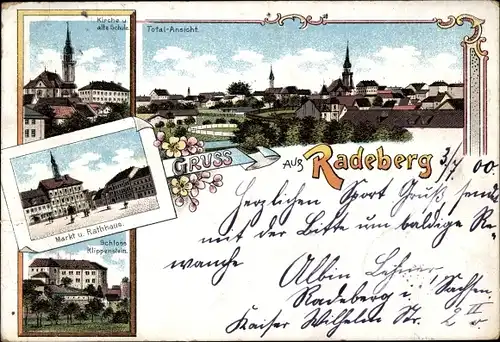 Kirche u.
alte Schule.
Total-Ansicht.
Gruss
aus Radeberg
3/7 00
Markt u. Rathhaus.
Schloss
Klippenstein.
Herzlichen Sport Gruß sendet
mit der Bitte um baldige Re-
wanche
Albin
Radeberg i. Sachsen
Kaiser Wilhelm Str. 2 II